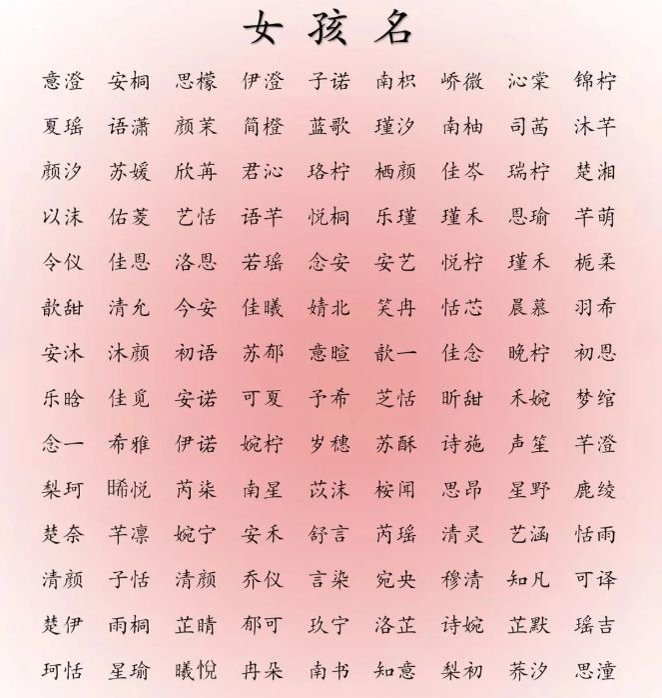 女孩名
意澄 安桐 思檬 伊澄 子诺 南枳 峤微 沁棠 锦柠
夏瑶 语潇 颜茉 简橙 蓝歌 瑾汐 南柚 司茜 沐芊
颜汐 苏媛 欣苒 君沁 珞柠 栖颜 佳岑 瑞柠 楚湘
以沫 佑菱 艺恬 语芊 悦桐 乐瑾 瑾禾 思瑜 芊萌
令仪 佳恩 洛恩 若瑶 念安 安艺 悦柠 瑾禾 栀柔
歆甜 清允 今安 佳曦 婧北 笑冉 恬芯 晨慕 羽希
安沐 沐颜 初语 苏郁 意暄 歆一 佳念 晚柠 初恩
乐晗 佳觅 安诺 可夏 予希 芝恬 昕甜 禾婉 梦绾
念一 希雅 伊诺 婉柠 岁穗 苏酥 诗施 声笙 芊澄
梨珂 晞悦 芮柒 南星 苡沫 桉闻 思昂 星野 鹿绫
楚奈 芊凛 婉宁 安禾 舒言 芮瑶 清灵 艺涵 恬雨
清颜 子恬 清颜 乔仪 言染 宛央 穆清 知凡 可译
楚伊 雨桐 芷晴 郁可 玖宁 洛芷 诗婉 芷默 瑶吉
珂恬 星瑜 曦悅 冉朵 南书 知意 梨初 荞汐 思潼